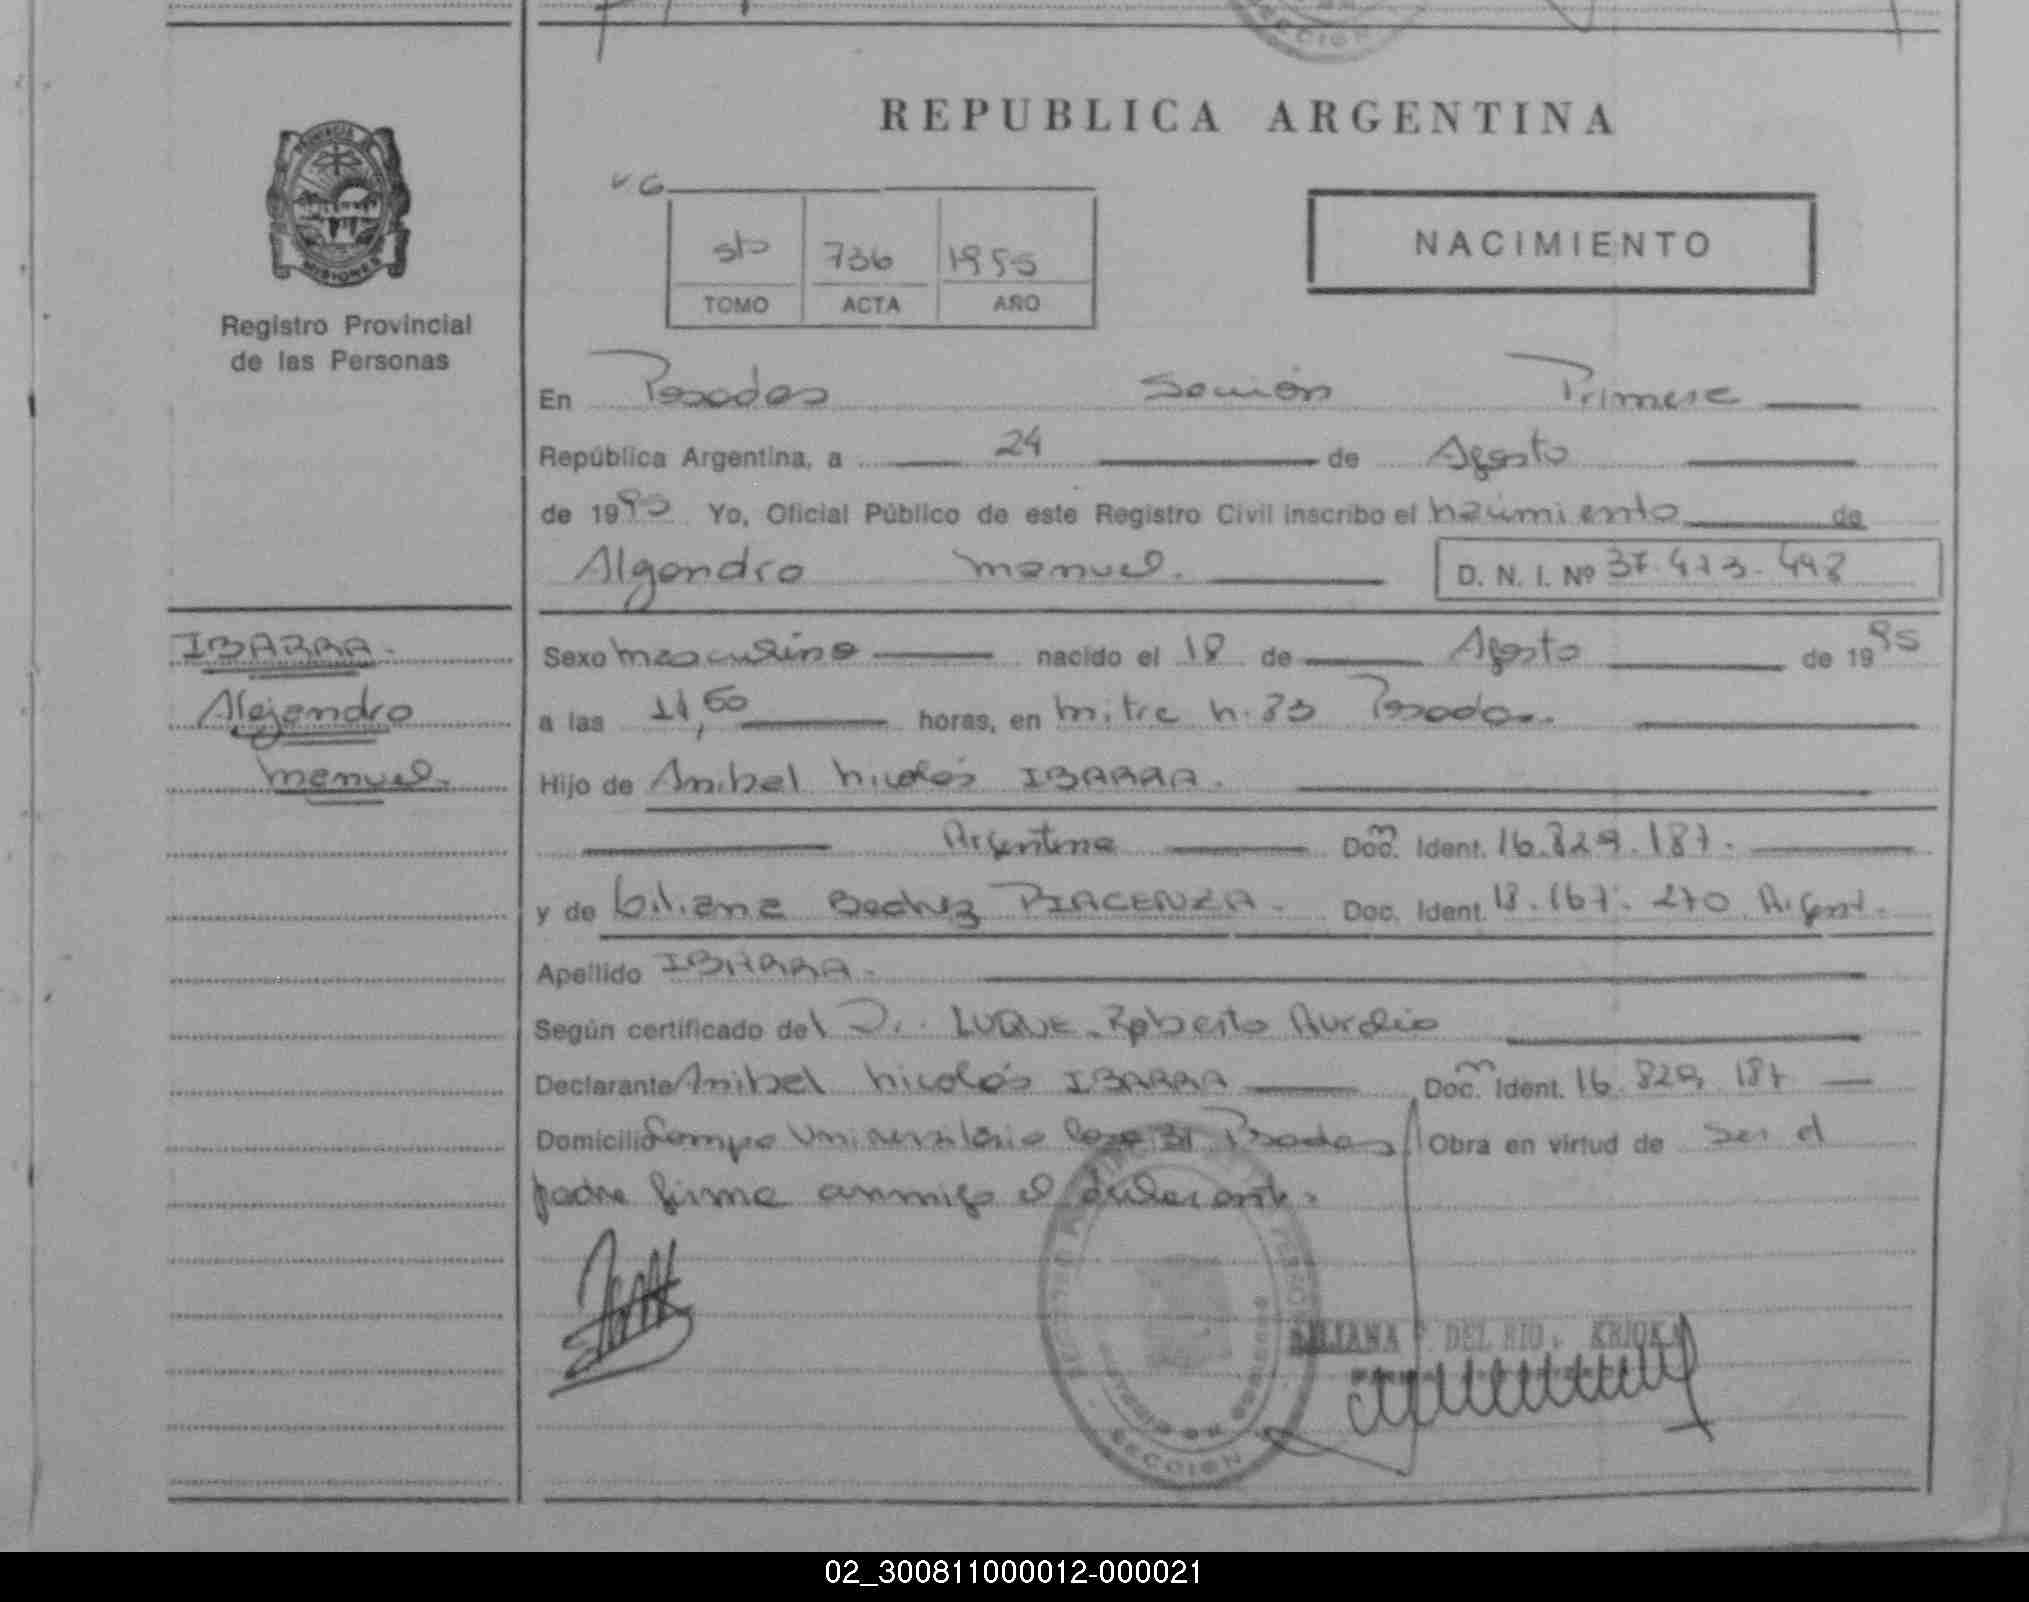 REPUBLICA ARGENTINA
PROVINCIA
MISIONES
Registro Provincial
de las Personas
736 1995
TOMO ACTA AÑO
NACIMIENTO
En Posadas Sección Primera
República Argentina, a 24 de Agosto
de 1995 Yo, Oficial Público de este Registro Civil inscribo el nacimiento de
Alejandro Manuel. D. N. I. Nº
IBARRA.
Alejandro
Manuel.
Sexo masculino nacido el 18 de Agosto de 1995
a las 11,50 horas, en mitre n. Posadas.
Hijo de Anibal Nicolás IBARRA.
Argentina Doc. Ident. 16.829.187.
y de Liliana Beatriz PIACENZA. Doc. Ident. 18.167.270 Argent.
Apellido IBARRA.
Según certificado del Dr. LUQUE Roberto Aurelio
Declarante Anibal Nicolás IBARRA Doc. Ident. 16.829.187
Domicilio Campo Universitario Casa 31 Posadas Obra en virtud de ser el
padre firma conmigo el declarante.
LILIANA DEL RIO
SECCION
02_300811000012-000021